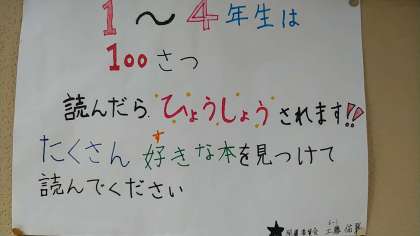 1〜4年生は
100さつ
読んだら ひょうしょうされます!!
たくさん 好きな本を見つけて
読んでください